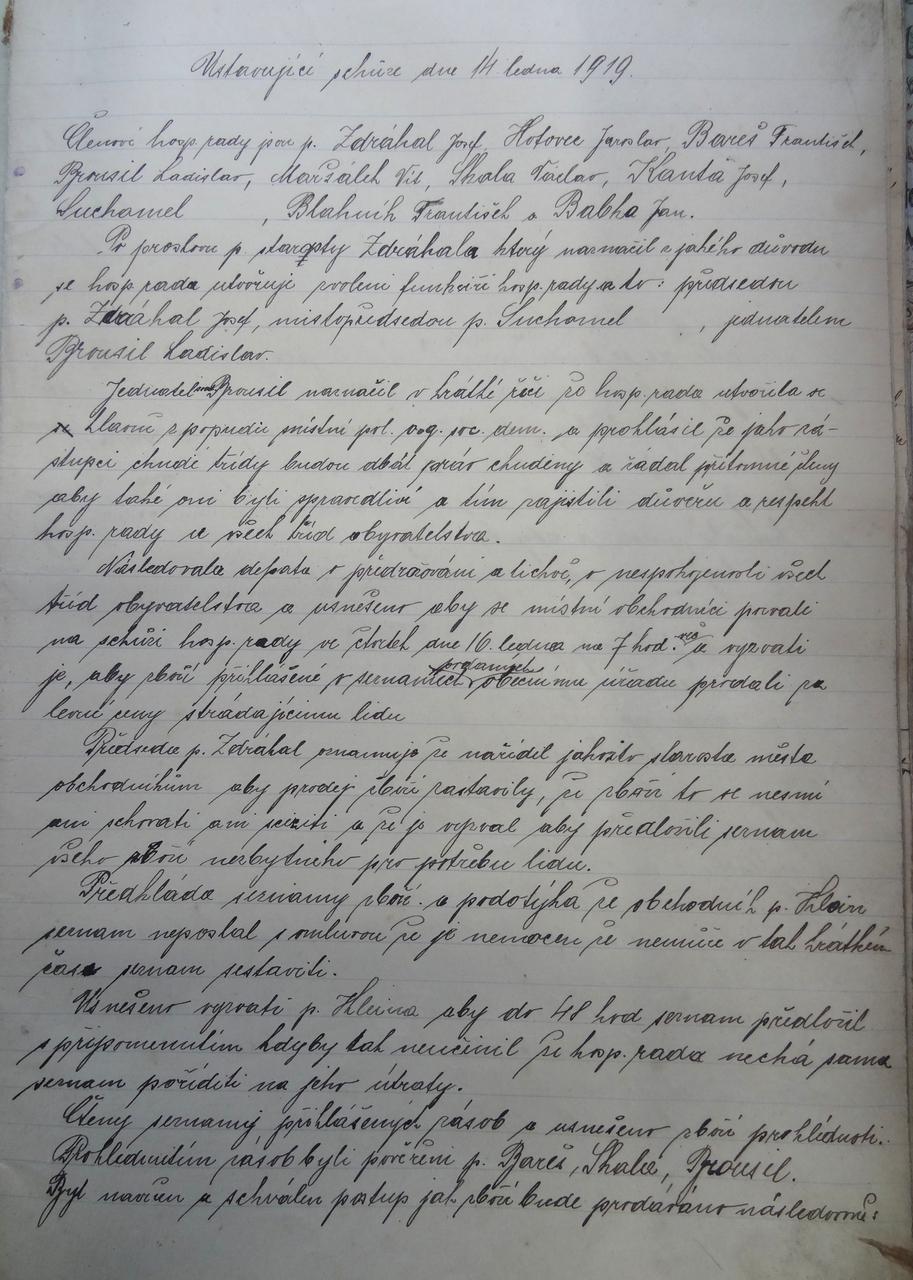 Ustavující schůze dne 14 ledna 1919.
Členové hosp. rady jsou p. Zdráhal Josef, Hotovec Jaroslav, Bareš František,
Brousil Ladislav, Maršálek Vít, Skala Václav, Kanta Josef,
Suchomel , Blahník František a Babka Jan.
Po proslovu p. starosty Zdráhala který naznačil z jakého důvodu
se hosp. rada utvořuje zvoleni funkcíři hosp. rady a to: předsedou
p. Zdráhal Josef, místopředsedou p. Suchomel , jednatelem
Brousil Ladislav.
Jednatel Brousil naznačil v krátké řeči že hosp. rada utvořila se
hlavně z popudu místní pol. org. soc. dem. a prohlásil že jako zá-
stupci chudé třídy budou dbát práv chudiny a žádal přítomné členy
aby také oni byli spravedliví a tím zajistili důvěru a respekt
hosp. rady u všech tříd obyvatelstva.
Následovala debata o předražování a lichvě, o nespokojenosti všech
tříd obyvatelstva a usnešeno aby se místní obchodníci pozvali
na schůzi hosp. rady ve čtvrtek dne 16. ledna na 7 hod. več. a vyzvati
je, aby zboží přihlášené v seznamech podaných obecnímu úřadu prodali za
levné ceny strádajícímu lidu
Předseda p. Zdráhal oznamuje že nařídil jakožto starosta města
obchodníkům aby prodej zboží zastavily, že zboží to se nesmí
ani schovati ani sciziti a že je vyzval aby předložili seznam
všeho zboží nezbytného pro potřebu lidu.
Předkládá seznamy zboží a podotýká že obchodník p. Klein
seznam neposlal s omluvou že je nemocen že nemůže v tak krátkém
čase seznam sestaviti.
Usnešeno vyzvati p. Kleina aby do 48 hod seznam předložil
s připomenutím kdyby tak neučinil že hosp. rada nechá sama
seznam poříditi na jeho útraty.
Čteny seznamy přihlášených zásob a usnešeno zboží prohlédnouti.
Prohlednutím zásob byli pověřeni p. Bareš, Skala, Brousil.
Byl navržen a schválen postup jak zboží bude prodáváno následovně: